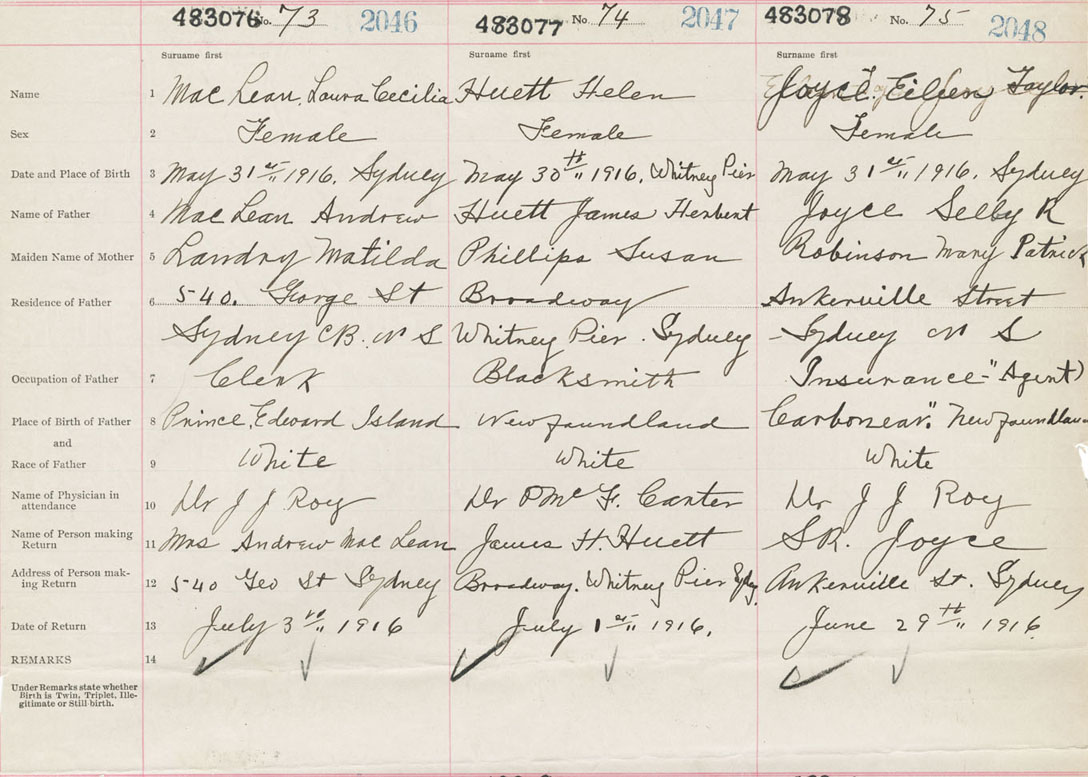 483076 No. 73 2046 483077 No. 74 2047 483078 No. 75 2048
Surname first Surname first Surname first
Name 1 Mac Lean, Laura Cecilia Huett Helen Joyce. Eileen Taylor.
Sex 2 Female Female Female
Date and Place of Birth 3 May 31st 1916. Sydney May 30th 1916. Whitney Pier May 31st 1916. Sydney
Name of Father 4 Mac Lean Andrew Huett James Herbert Joyce Selby R
Maiden Name of Mother 5 Landry Matilda Phillips Susan Robinson Mary Patrick
Residence of Father 6 540. George St Broadway Ankerville Street
Sydney CB. N S Whitney Pier. Sydney Sydney N S
Occupation of Father 7 Clerk Blacksmith Insurance "Agent)
Place of Birth of Father 8 Prince Edward Island Newfoundland Carbonear". Newfoundlan
and
Race of Father 9 White White White
Name of Physician in
attendance 10 Dr J J Roy Dr D Mc F. Carter Dr J J Roy
Name of Person making
Return 11 Mrs Andrew Mac Lean James H. Huett S R. Joyce
Address of Person mak-
ing Return 12 540 Geo St Sydney Broadway. Whitney Pier Sydney Ankerville St. Sydney
Date of Return 13 July 3rd 1916 July 1st 1916. June 29th 1916
REMARKS 14
Under Remarks state whether
Birth is Twin, Triplet, Ille-
gitimate or Still-birth.